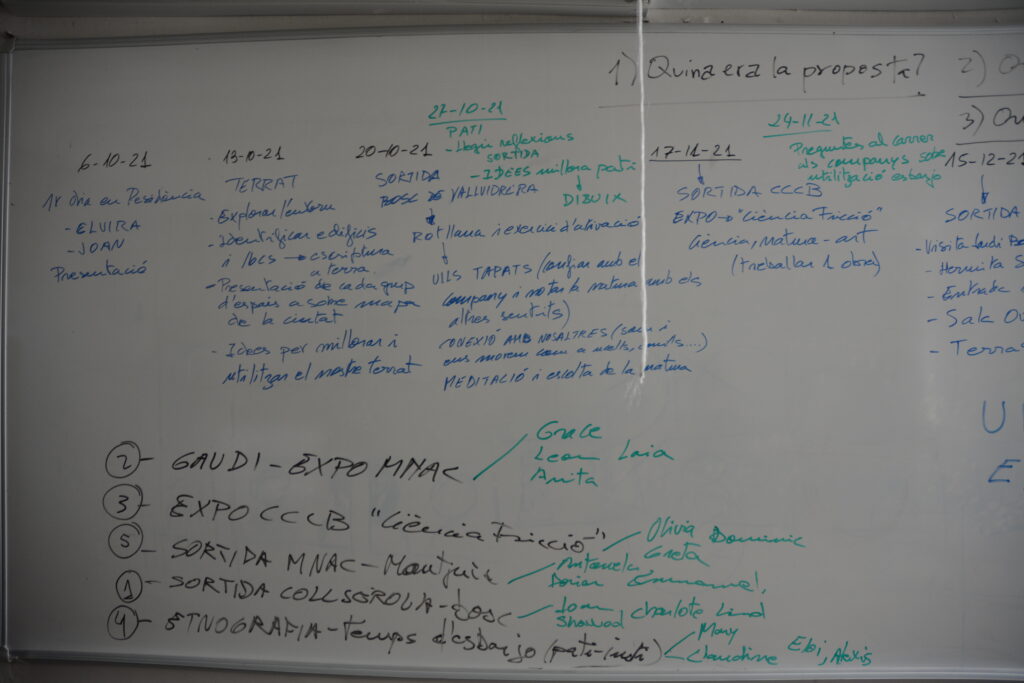 1) Quina era la proposta?
2)
3)
6-10-21
1r dia en Residència
- ELVIRA
- JOAN
Presentació
13-10-21
TERRAT
- Explorar l'entorn
- Identificar edificis
i llocs → escriptura
a terra.
- Presentació de cada grup
d'espais a sobre mapa
de la ciutat
- Idees per millorar i
utilitzar el nostre terrat
20-10-21
SORTIDA
BOSC DE VALLVIDRERA
Rotllana i exercici d'activació
ULLS TAPATS (confiar amb el
company i notar la natura amb els
altres sentits)
CONEXIÓ AMB NOSALTRES (som i
ens movem com a
MEDITACIÓ i escolta de la natura
27-10-21
PATI
- Llegir reflexions
SORTIDA
- IDEES millora pati
DIBUIX
17-11-21
SORTIDA CCCB
EXPO → "Ciència Fricció"
Ciència, Natura - art
(treballar 1 obra)
24-11-21
Preguntes al carrer
als companys sobre
utilització esbarjo
15-12-21
SORTIDA
- Visita Gaudí
- Hermita S
- Entrada
- Sala
- Terra
U
E
2 - GAUDI - EXPO MNAC
Grace
Leon Laia
Anita
3 - EXPO CCCB "Ciència Fricció"
5 - SORTIDA MNAC - Montjuic
Olivia Dominic
Antonela Greta
Dorian Emmanuel,
1 - SORTIDA COLLSEROLA - bosc
Joan, Charlote
4 - ETNOGRAFIA - temps d'esbarjo (pati-insti)
Mary
Claudine Eloi, Alexis